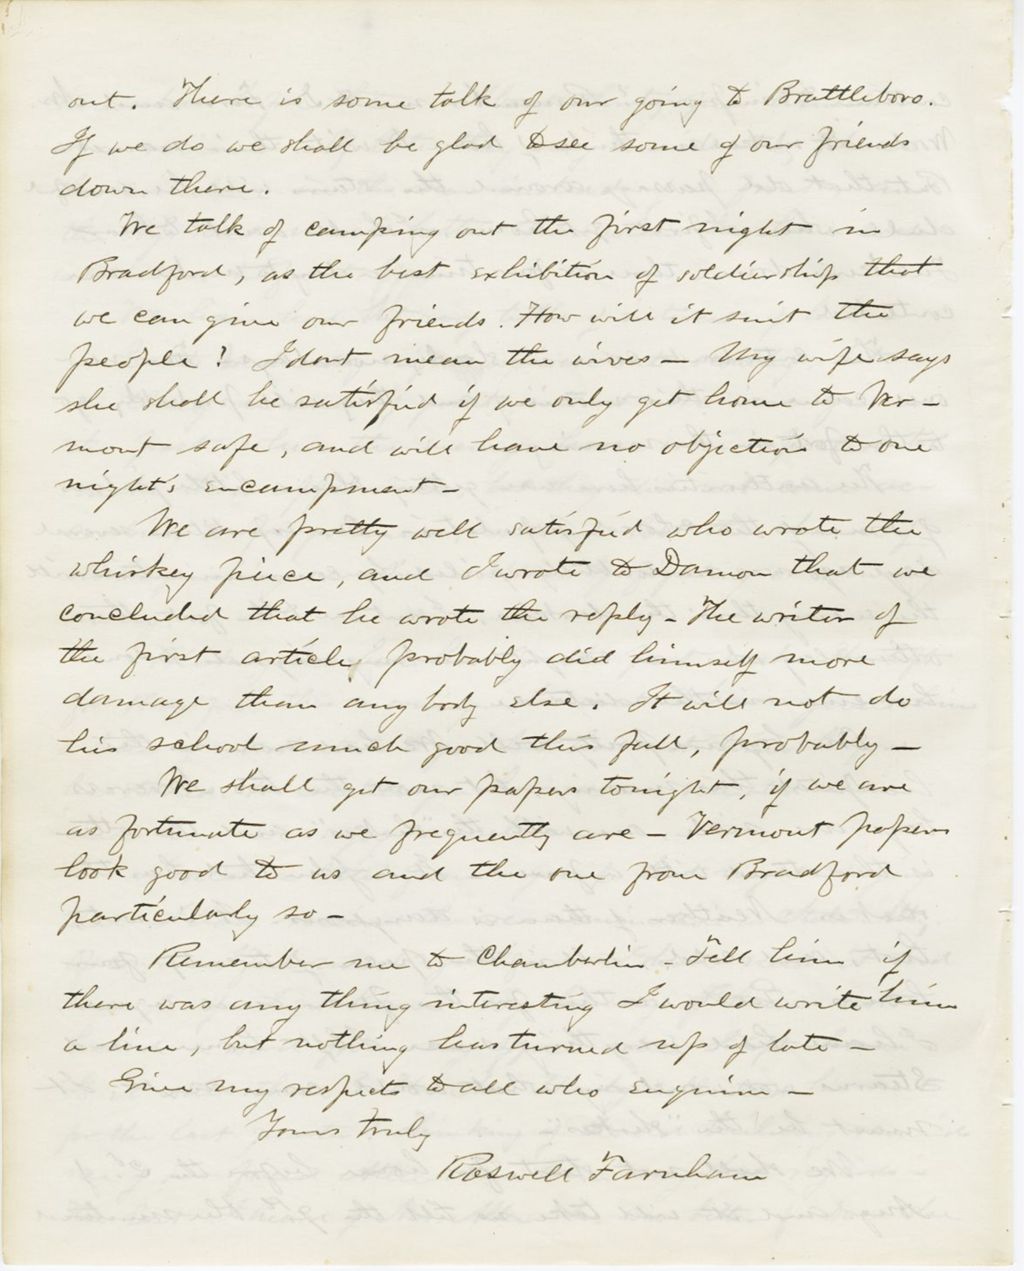 out. There is some talk of our going to Brattleboro.
If we do we shall be glad to see some of our friends
down there.
We talk of camping out the first night in
Bradford, as the best exhibition of soldiership that
we can give our friends. How will it suit the
people? I dont mean the wives — My wife says
she shall be satisfied if we only get home to Ver-
mont safe, and will have no objection to one
night's encampment —
We are pretty well satisfied who wrote the
whiskey piece, and I wrote to Damon that we
concluded that he wrote the reply - The writer of
the first article, probably did himself more
damage than any body else. It will not do
his school much good this fall, probably —
We shall get our papers tonight, if we are
as fortunate as we frequently are — Vermont papers
look good to us and the one from Bradford
particularly so —
Remember me to Chamberlin - Tell him if
there was any thing interesting I would write him
a line, but nothing has turned up of late —
Give my respects to all who enquire —
Yours truly
Roswell Farnham